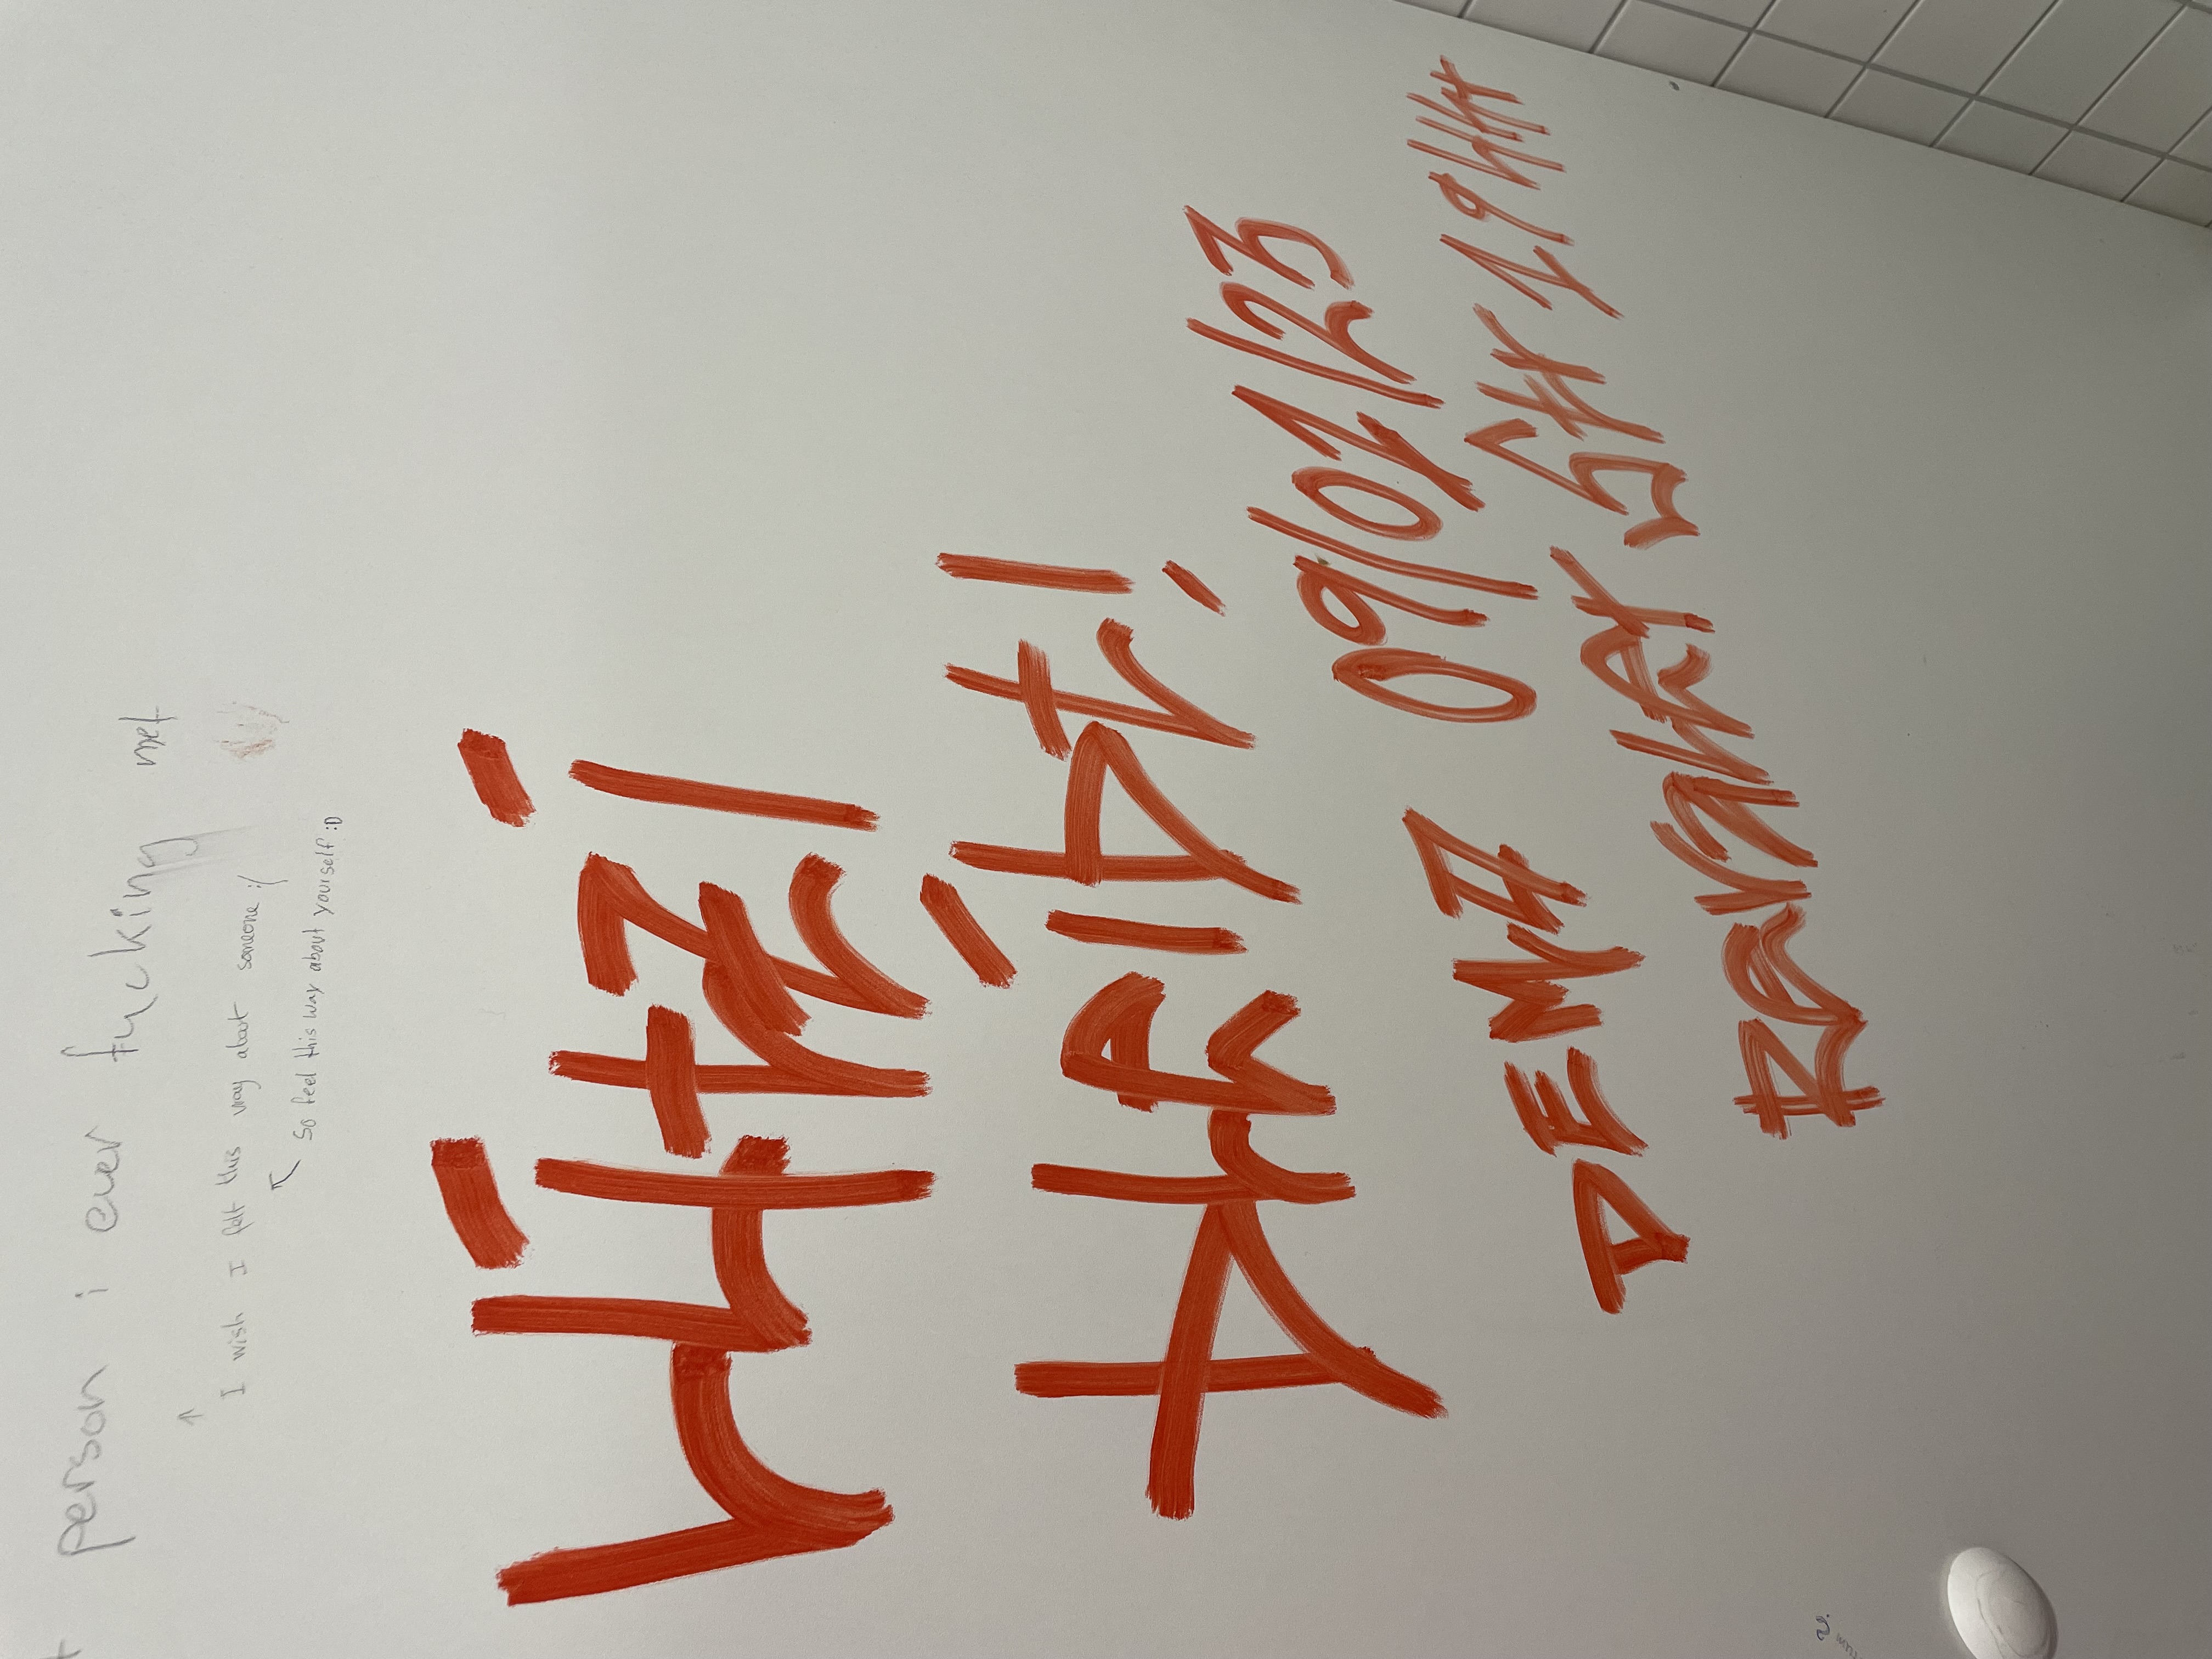 person i ever fucking met
↑
I wish I felt this way about someone :/
↖ So feel this way about yourself :D
Lützi
bleibt!
DEMO 09/01/23
Revaler Str 19 Uhr